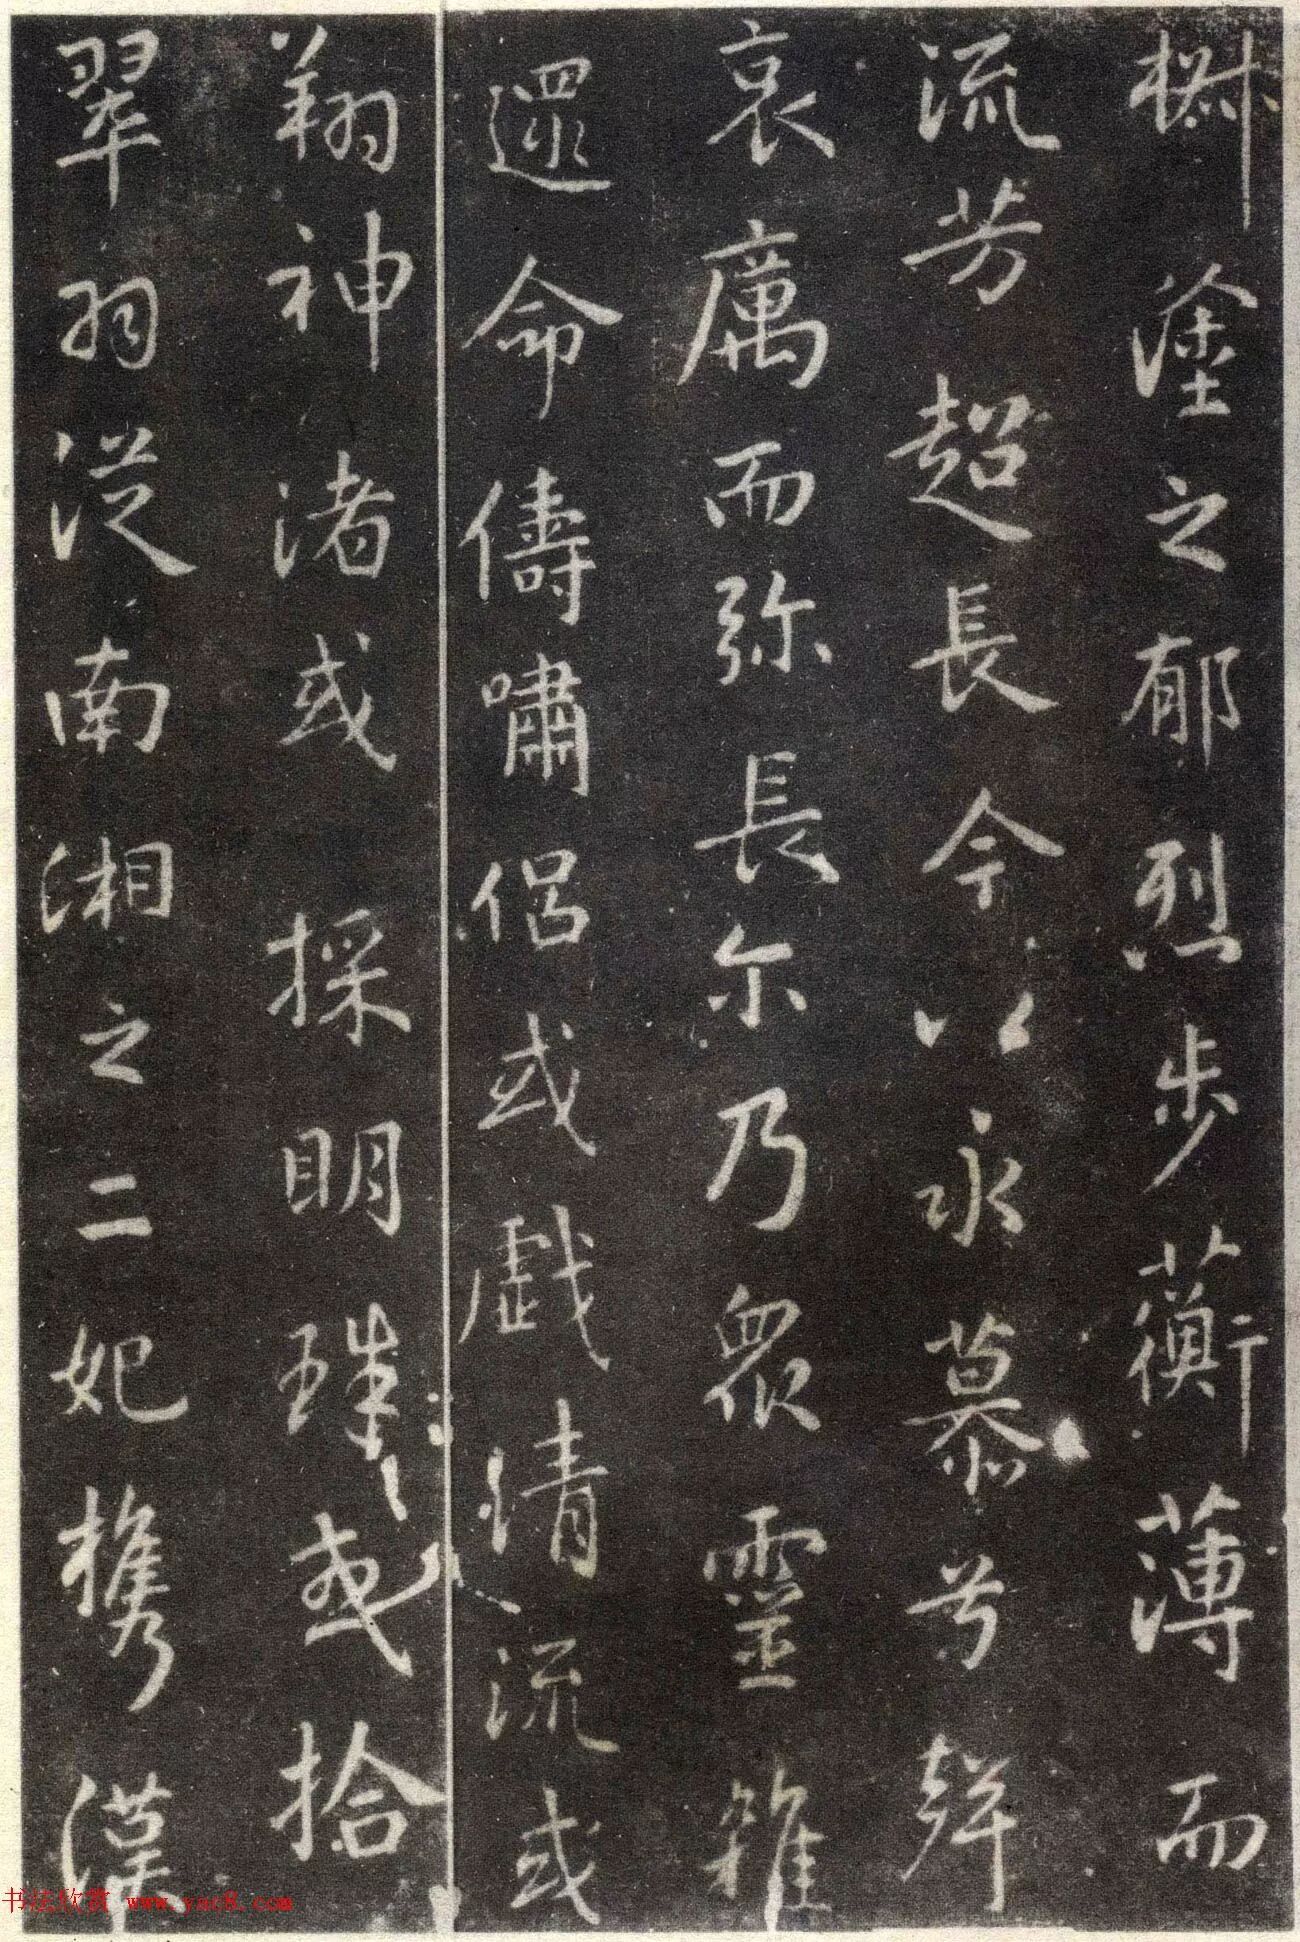 椒塗之郁烈步蘅薄而
流芳超長今以永慕兮聲
哀厲而弥長尓乃衆靈雜
遝命儔嘯侶或戯清流或
翔神渚或採明珠或拾
翠羽從南湘之二妃携漢
书法欣赏 www.yac8.com